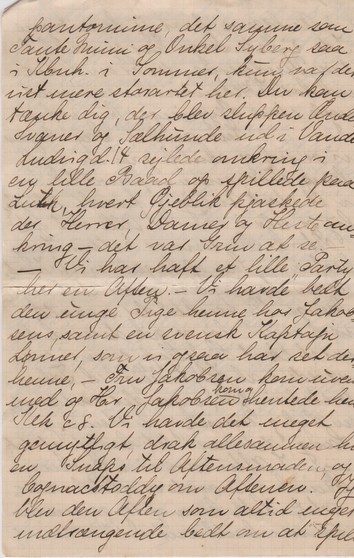 pantomime, det samme som
Tante Mimi og Onkel Syberg saa
i Kbnh. i Sommer, kun var det
vist mere storartet her. Du kan
tænke dig, der blev sluppen Ænder
Svaner og Sælhunde ud i Vande
sejlede omkring i
en lille Baad og spillede paa
hvert Øjeblik pjaskede
der Herrer, Damer og Heste om
kring – det var Grin at se –
– Vi har haft et lille Party
her en Aften. – Vi havde bedt
den unge Pige henne hos Jakob
sens, samt en svensk Kaptajn
som vi ogsaa har set der
henne, – Fru Jakobsen kom
med og Hr. Jakobsen kom og hentede hen
Kl. Vi havde det meget
gemytligt, drak allesammen
en Snaps til Aftensmaden og
Cognactoddy om Aftenen.
blev den Aften som altid
indtrængende bedt om at spil